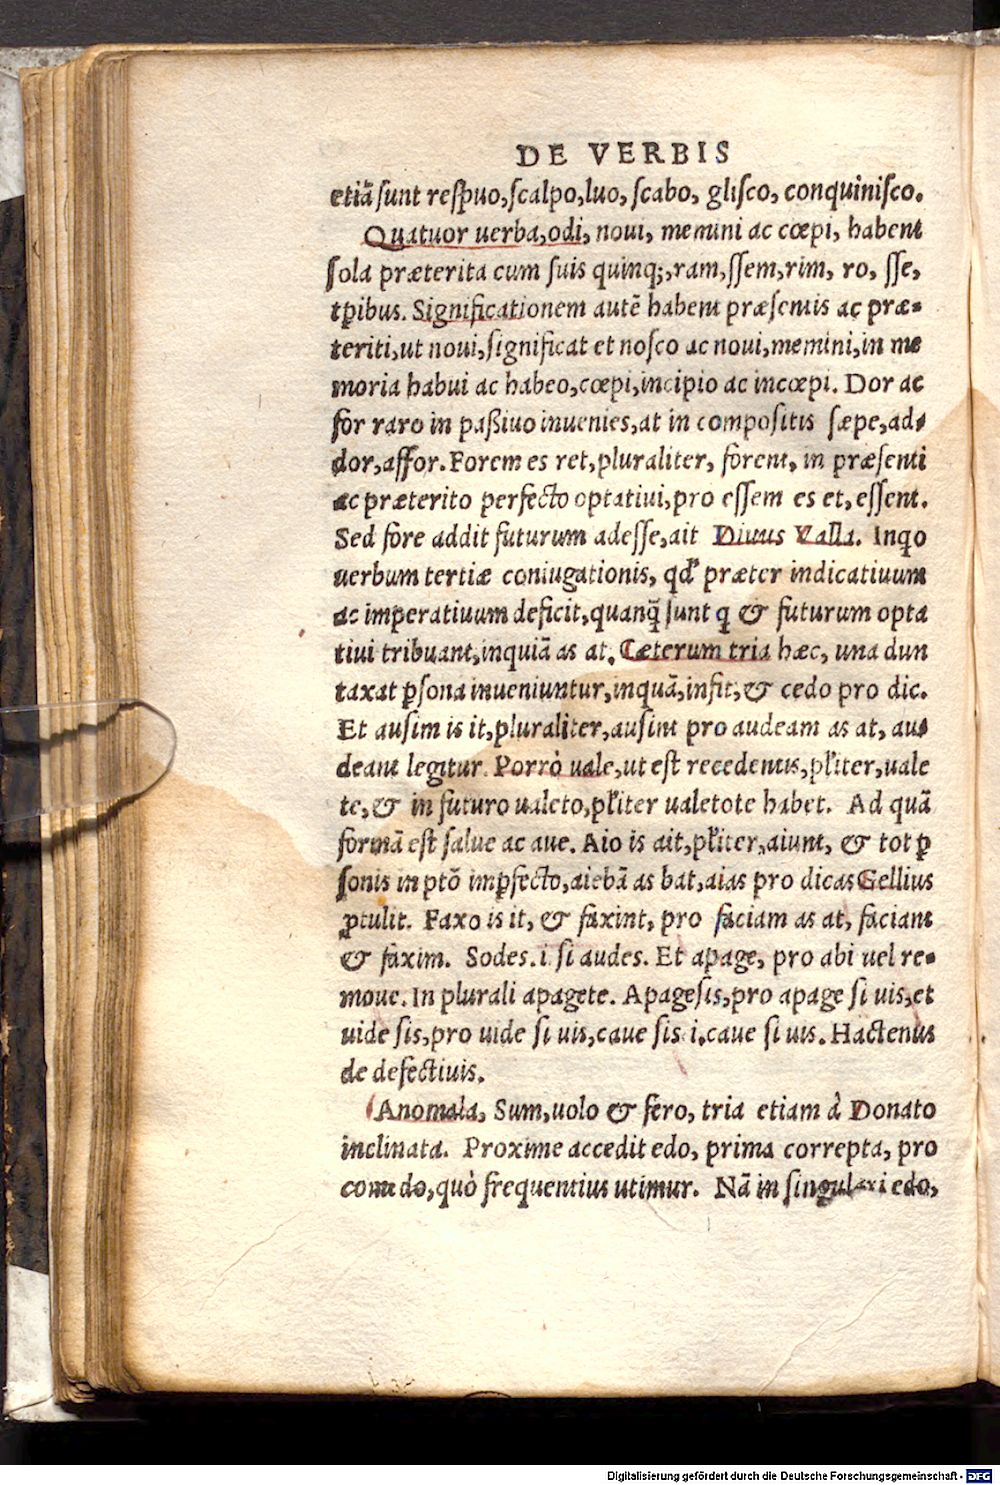 DE VERBIS
etiā sunt respuo, scalpo, luo, scabo, glisco, conquinisco.
Quatuor uerba, odi, noui, memini ac cœpi, habent
sola præterita cum suis quinq;, ram, ssem, rim, ro, sse,
tꝑibus. Significationem autē habent præsentis ac præ-
teriti, ut noui, significat et nosco ac noui, memini, in me
moria habui ac habeo, cœpi, incipio ac incœpi. Dor ac
for raro in paßiuo inuenies, at in compositis sæpe, ad-
dor, affor. Forem es ret, pluraliter, forent, in præsenti
ac præterito perfecto optatiui, pro essem es et, essent.
Sed fore addit futurum adesse, ait Diuus Valla. Inqo
uerbum tertiæ coniugationis, qd' præter indicatiuum
ac imperatiuum deficit, quanq̄ sunt q & futurum opta
tiui tribuant, inquiā as at. Cæterum tria hæc, una dun
taxat ꝑsona inueniuntur, inquā, infit, & cedo pro dic.
Et ausim is it, pluraliter, ausint pro audeam as at, au-
deant legitur. Porrò uale, ut est recedentis, pl'iter, uale
te, & in futuro ualeto, pl'iter ualetote habet. Ad quā
formā est salue ac aue. Aio is ait, pl'iter, aiunt, & tot ꝑ
sonis in ptō imꝑfecto, aiebā as bat, aias pro dicas Gellius
ꝓtulit. Faxo is it, & faxint, pro faciam as at, faciant
& faxim. Sodes .i. si audes. Et apage, pro abi uel re-
moue. In plurali apagete. Apagesis, pro apage si uis, et
uide sis, pro uide si uis, caue sis .i. caue si uis. Hactenus
de defectiuis.
Anomala, Sum, uolo & fero, tria etiam à Donato
inclinata. Proxime accedit edo, prima correpta, pro
comedo, quò frequentius utimur. Nā in singulari edo,
Digitalisierung gefördert durch die Deutsche Forschungsgemeinschaft - DFG